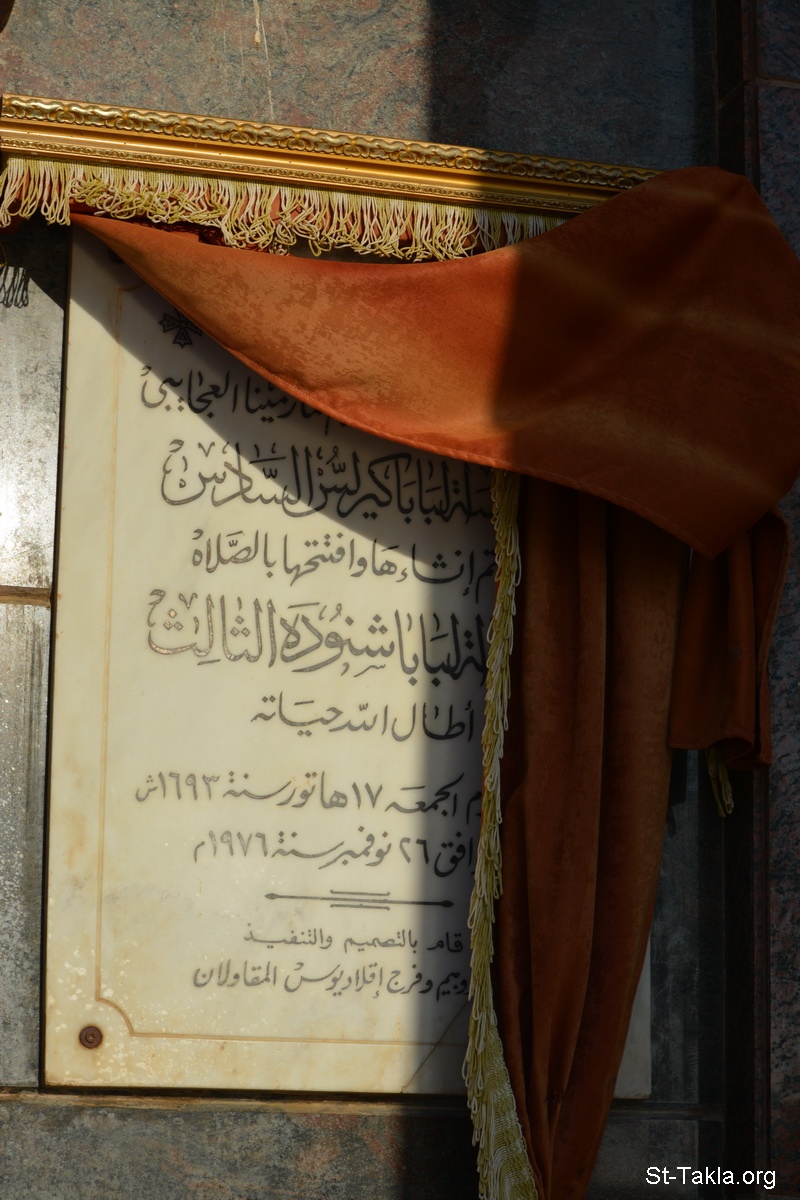 مارمينا العجايبى
لبابا كيرلس السادس
تم إنشاءها وافتتحها بالصلاه
لبابا شنوده الثالث
أطال الله حياته
الجمعه ١٧ هاتور سنة ١٦٩٣ش
٢٦ نوفمبر سنة ١٩٧٦م
قام بالتصميم والتنفيذ
وفرج إقلاديوس المقاولان
St-Takla.org